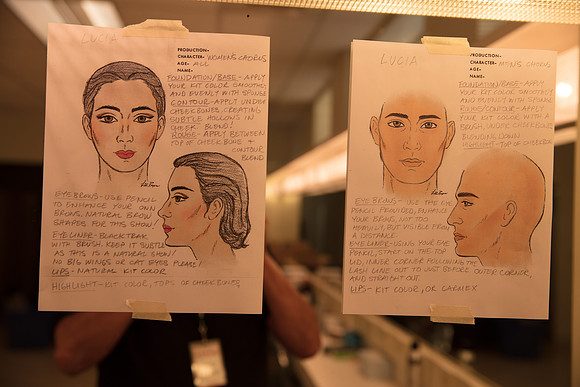 LUCIA
PRODUCTION-
CHARACTER- WOMENS CHORUS
AGE- ALL
NAME-
FOUNDATION/BASE - APPLY
YOUR KIT COLOR SMOOTHLY
AND EVENLY WITH SPONGE
CONTOUR - APPLY UNDER
CHEEKBONES, CREATING
SUBTLE HOLLOWS IN
CHEEK. BLEND!
ROUGE - APPLY BETWEEN
TOP OF CHEEK BONE +
CONTOUR,
BLEND
EYE BROWS - USE PENCIL
TO ENHANCE YOUR OWN
BROWS, NATURAL BROW
SHAPES FOR THIS SHOW!
EYE LINER - BLACK TRAK
WITH BRUSH. KEEP IT SUBTLE
AS THIS IS A NATURAL SHOW!
NO BIG WINGS OR CAT EYES PLEASE
LIPS - NATURAL KIT COLOR
HIGHLIGHT - KIT COLOR, TOPS OF CHEEK BONES
LUCIA
PRODUCTION-
CHARACTER- MENS CHORUS
AGE-
NAME-
FOUNDATION/BASE - APPLY
YOUR KIT COLOR SMOOTHLY
AND EVENLY WITH SPONGE
CONTOUR - APPLY
YOUR KIT COLOR WITH A
BRUSH UNDER CHEEKBONE
BLENDING DOWN
HIGHLIGHT - TOP OF CHEEKBONE
EYE BROWS - USE THE EYE
PENCIL PROVIDED, ENHANCE
YOUR BROWS, NOT TOO
HEAVILY, BUT VISIBLE FROM
A DISTANCE
EYE LINER - USING YOUR EYE
PENCIL, START ON THE TOP
LID, INNER CORNER FOLLOWING THE
LASH LINE OUT TO JUST BEFORE OUTER CORNER,
AND STRAIGHT OUT
LIPS - KIT COLOR, OR CARMEX